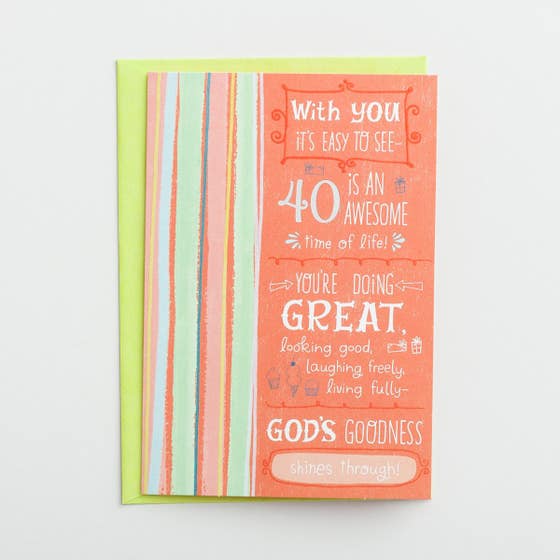 With YOU
IT'S EASY TO SEE–
40 IS AN
AWESOME
time of life!
YOU'RE DOING
GREAT,
looking good,
laughing freely,
living fully–
GOD'S GOODNESS
shines through!